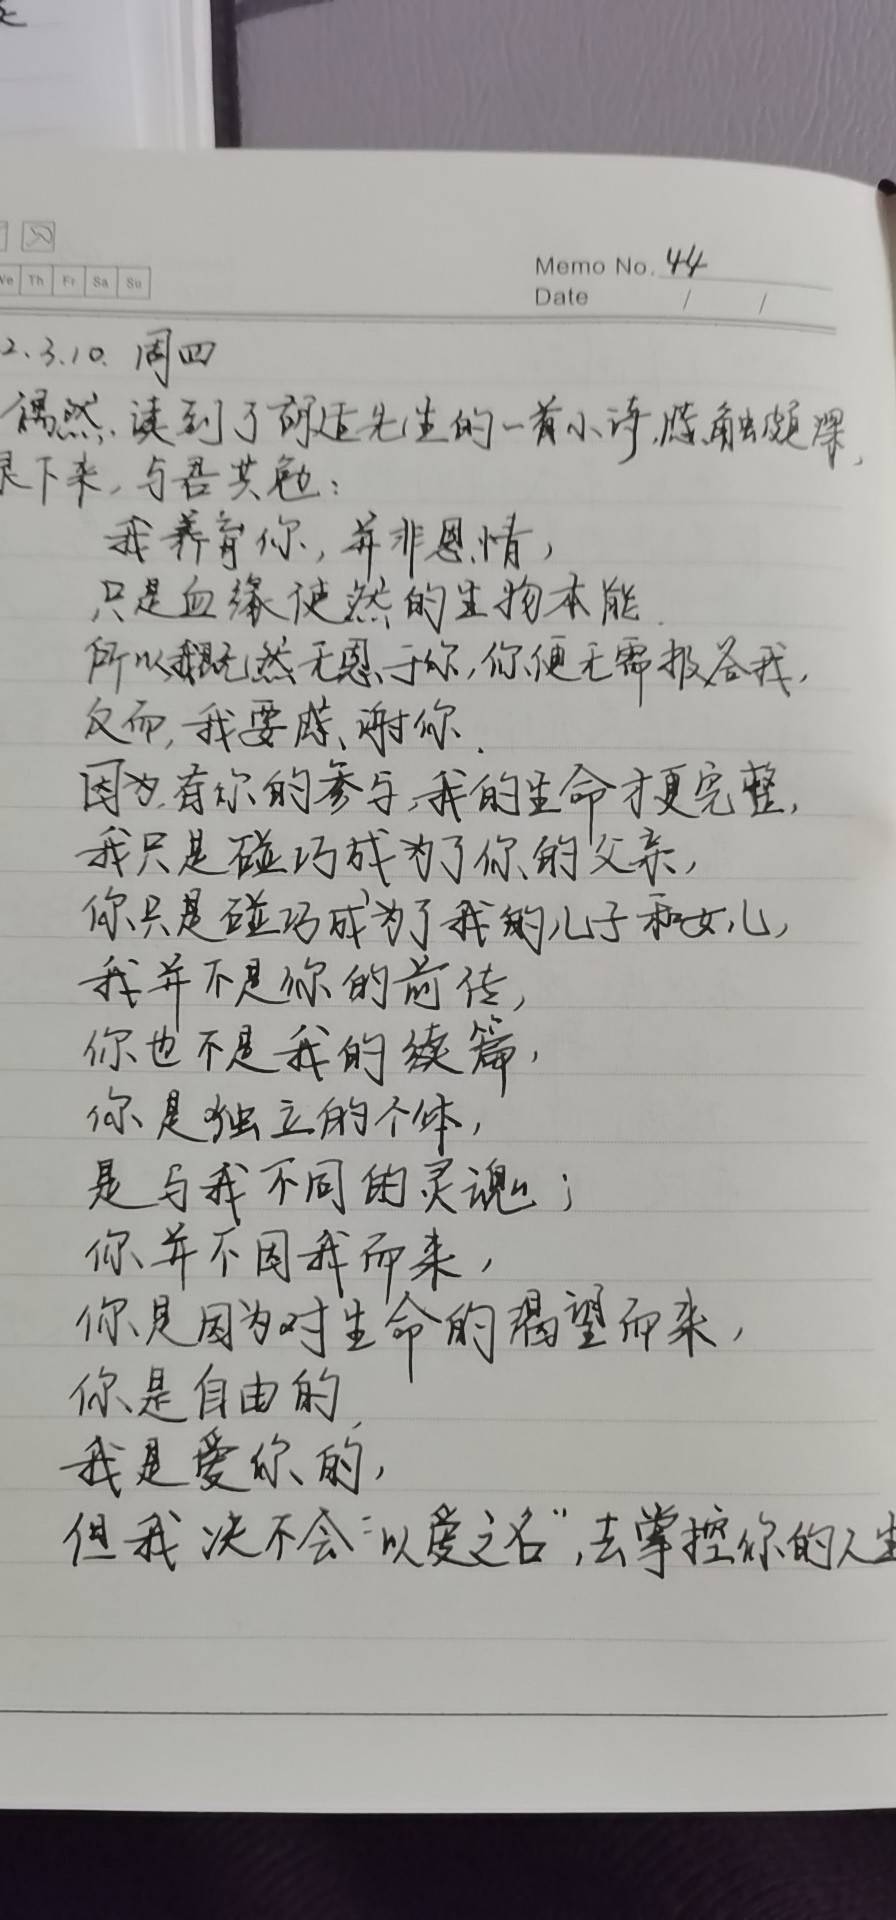 We Th Fr Sa Su
Memo No. 44
Date / /
2.3.10. 周四
偶然,读到了胡适先生的一首小诗,感触颇深,
录下来,与君共勉:
我养育你,并非恩情,
只是血缘使然的生物本能.
所以我既然无恩于你,你便无需报答我,
反而,我要感谢你.
因为,有你的参与,我的生命才更完整,
我只是碰巧成为了你的父亲,
你只是碰巧成为了我的儿子和女儿,
我并不是你的前传,
你也不是我的续篇,
你是独立的个体,
是与我不同的灵魂;
你并不因我而来,
你是因为对生命的渴望而来,
你是自由的,
我是爱你的,
但我决不会“以爱之名”,去掌控你的人生